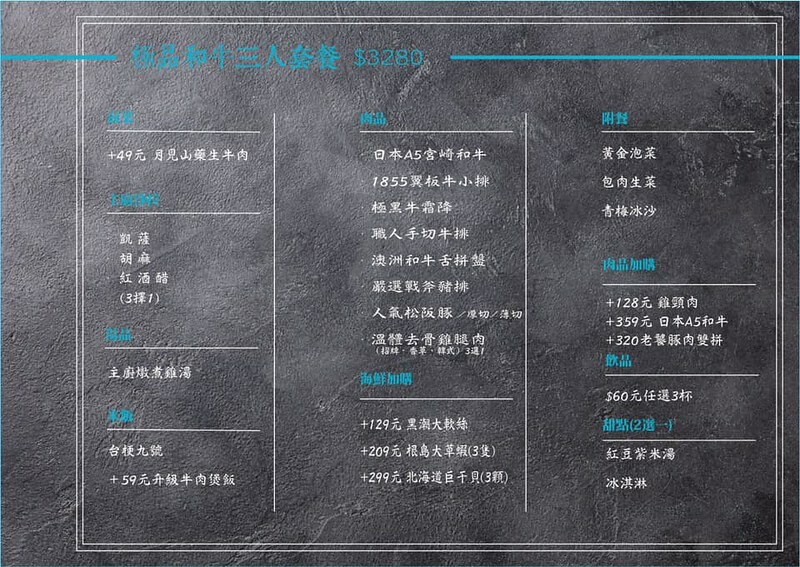 極品和牛三人套餐 $3280
前菜
+49元 月見山藥生牛肉
主廚沙拉
凱薩
胡麻
紅酒醋
(3擇1)
湯品
主廚燉煮雞湯
米飯
台梗九號
+59元升級牛肉煲飯
肉品
日本A5宮崎和牛
1855翼板牛小排
極黑牛霜降
職人手切牛排
澳洲和牛舌拼盤
嚴選戰斧豬排
人氣松阪豚／厚切/薄切
溫體去骨雞腿肉
(招牌．香草．韓式) 3選1
海鮮加購
+129元 黑潮大軟絲
+209元 根島大草蝦(3隻)
+299元 北海道巨干貝(3顆)
附餐
黃金泡菜
包肉生菜
青梅冰沙
肉品加購
+128元 雞頸肉
+359元 日本A5和牛
+320老饕豚肉雙拼
飲品
$60元任選3杯
甜點(2選一)
紅豆紫米湯
冰淇淋